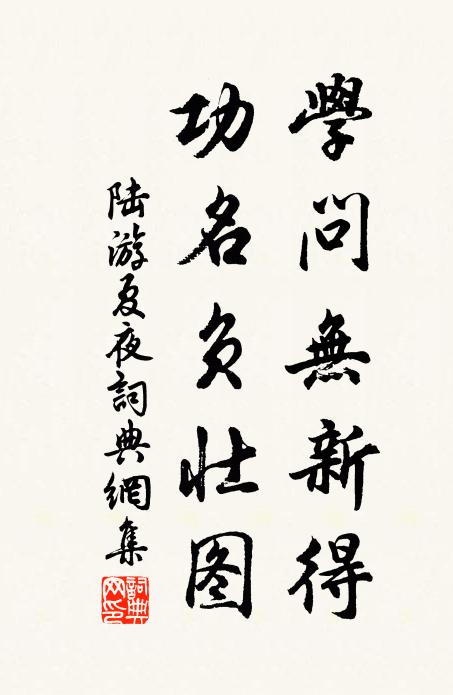 學問無新得
功名負壯图
陆游夏夜詞典網集
詞典網印